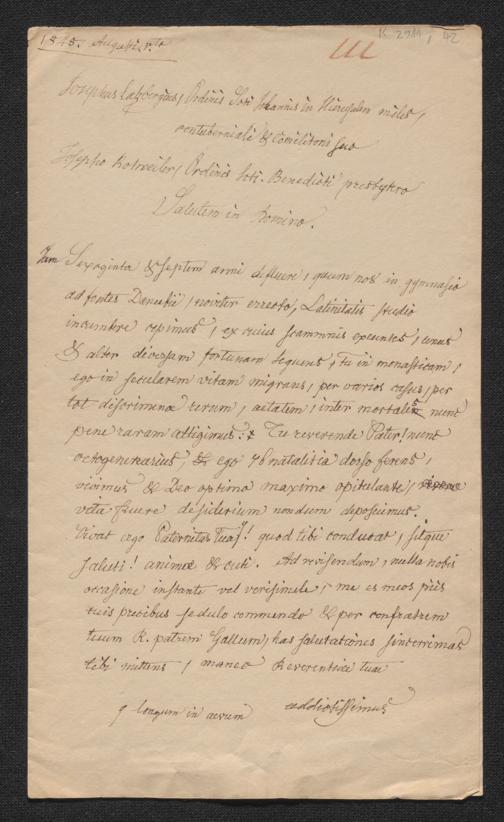 1848. Augusti
K 2911, 42
III
Josephus Laßbergius, Ordinis Scti Johannis in Hierusalem miles,
contuberniali & Comilitoni suo
Josepho Ordinis Scti. Benedicti presbytero
Salutem in Domino.
Jam Sexaginta & septem anni defluxere, quum nos in gymnasio
ad fontes Danubii, noviter erecto, Latinitatis studio
incumbere cepimus, ex cuius scamnis exeuntes, unus
& alter diversam fortunam sequens, tu in monasticam,
ego in secularem vitam migrans, per varios casus, per
tot discrimina rerum, aetatem, inter mortales nunc
pene raram attigimus: Tu reverende Pater! nunc
octogenerarius, ego 78 natalitia dorso ferens,
vivimus & Deo optimo maximo opitulante,
vita fruere desiderium nondum deposuimus.
Vivat ergo Paternitas Tua! quod tibi conducat, sitque
saluti! animae & cuti. Ad revisendum, nulla nobis
occasione instante vel verisimile, me et meos piis
tuis precibus sedulo commendo & per confratrem
tuum R. patrem Gallum, has salutationes sincerrimas
tibi mittens, maneo Reverentiae tuae
longum in aevum addictissimus